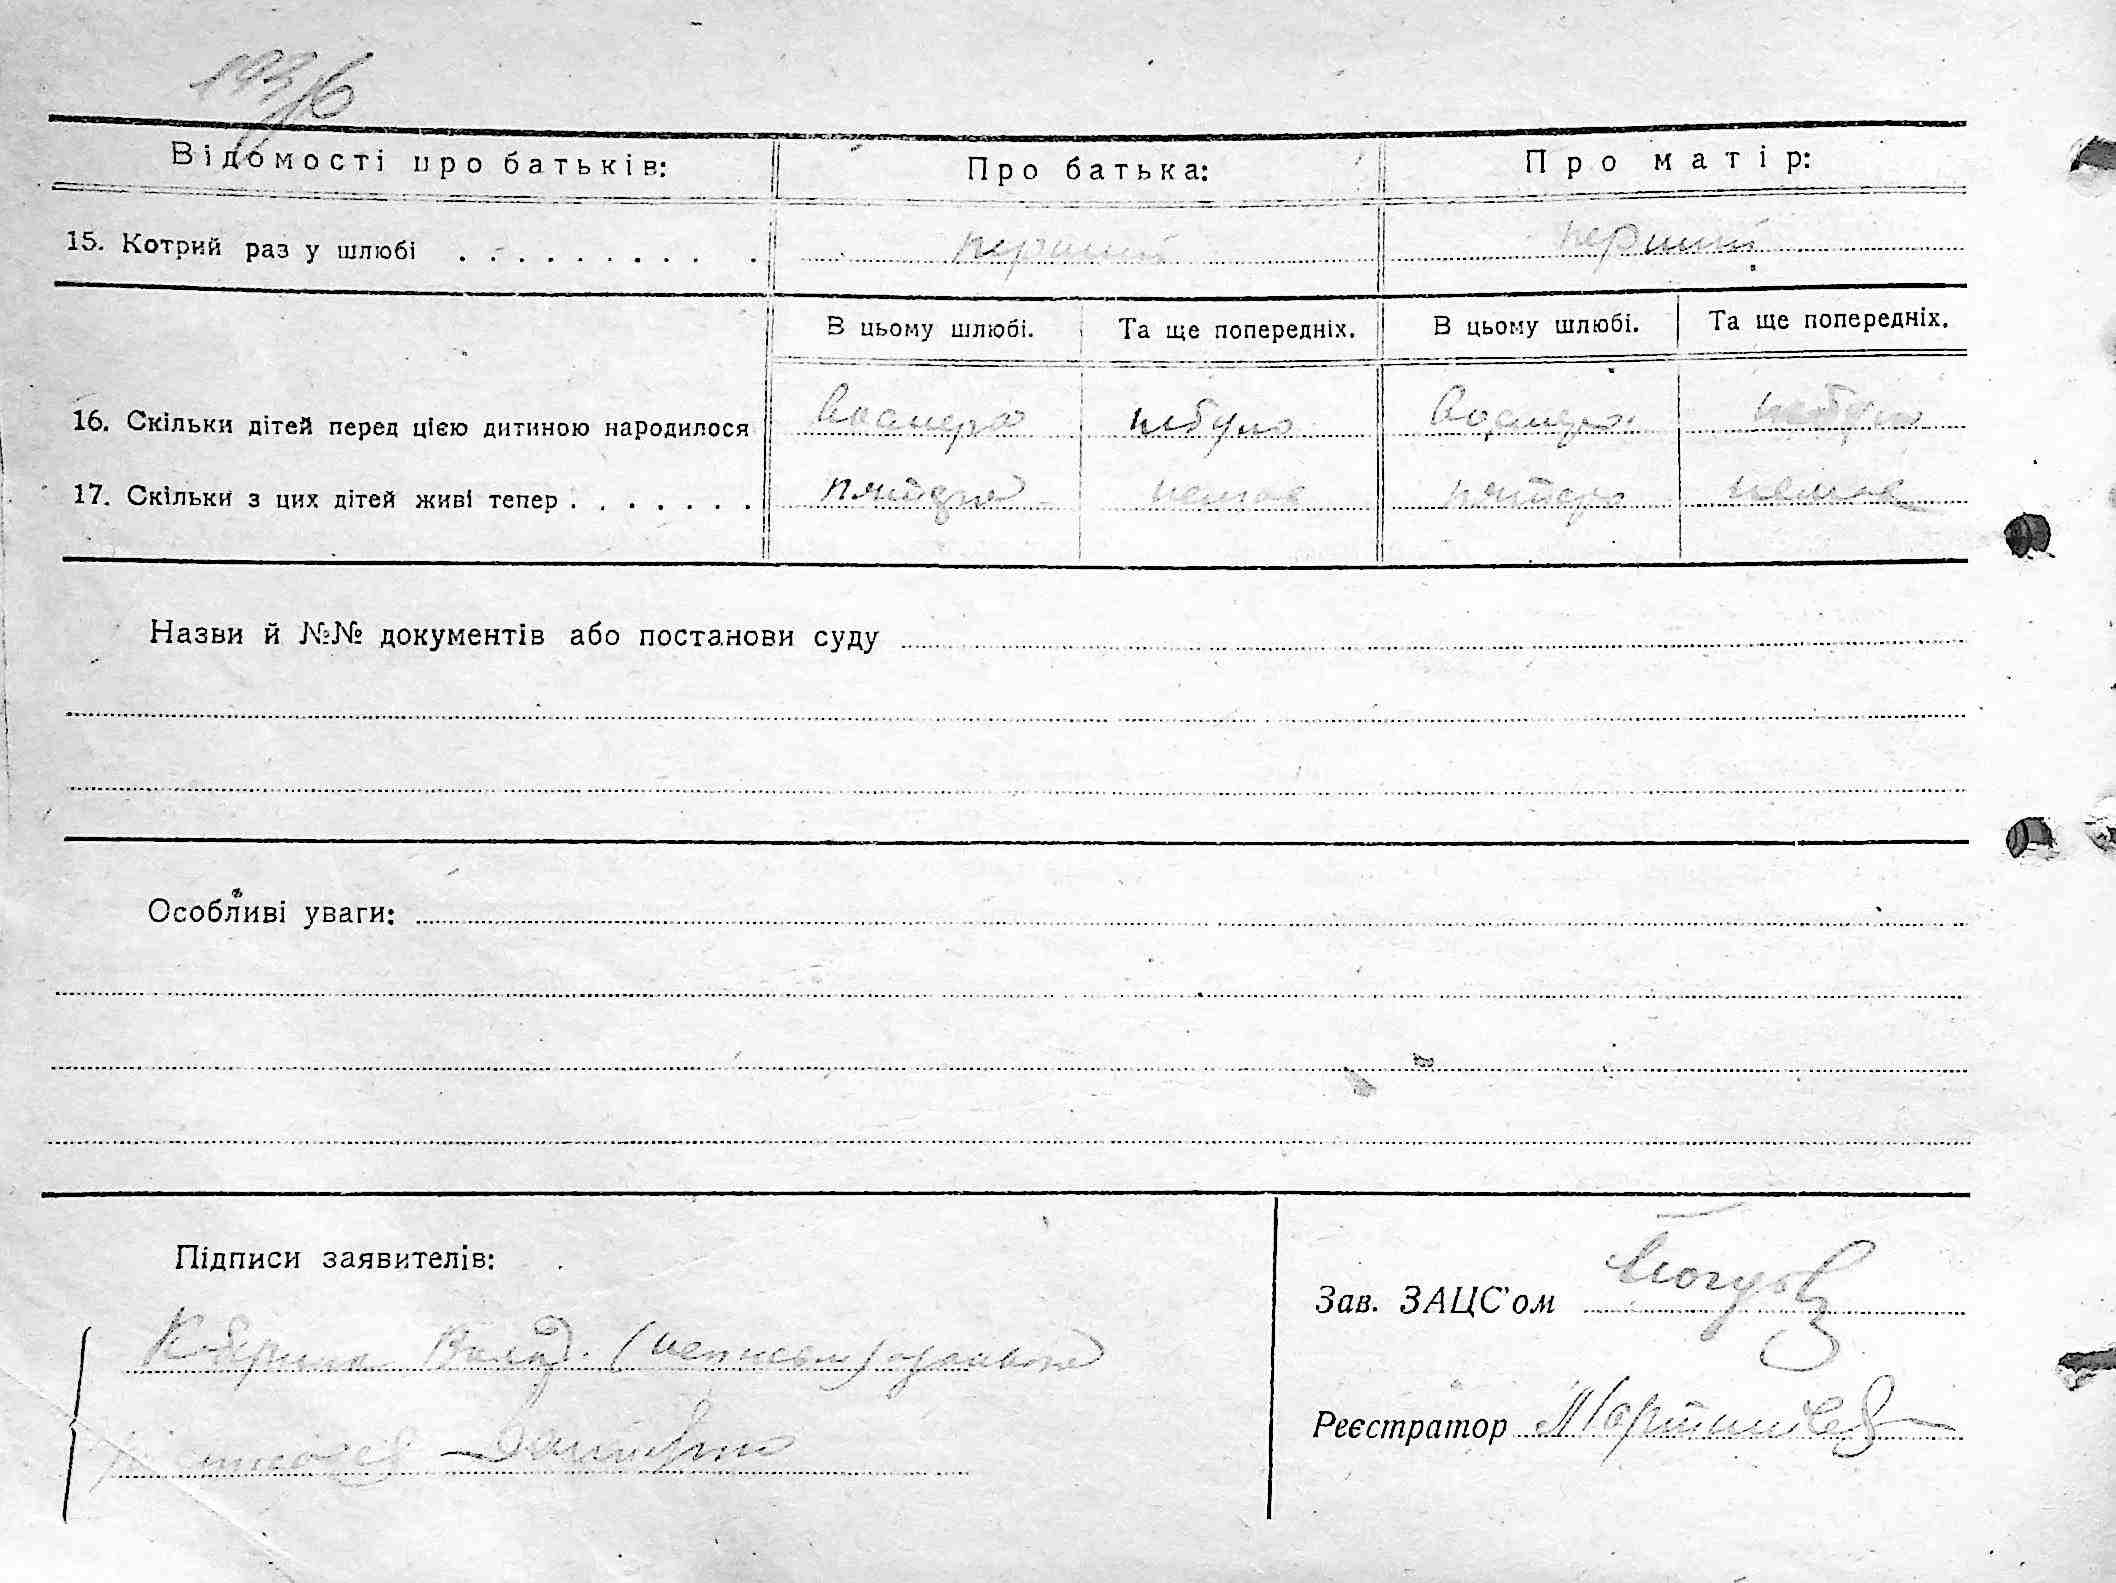 Відомості про батьків: Про батька: Про матір:
15. Котрий раз у шлюбі . . . . . . . . . . . перший перший
В цьому шлюбі. Та ще попередніх. В цьому шлюбі. Та ще попередніх.
16. Скільки дітей перед цією дитиною народилося восмеро небуло восмеро небуло
17. Скільки з цих дітей живі тепер . . . . . . . пятеро немає пятеро немає
Назви й №№ документів або постанови суду
Особливі уваги:
Підписи заявителів:
Зав. ЗАЦС'ом
Реєстратор